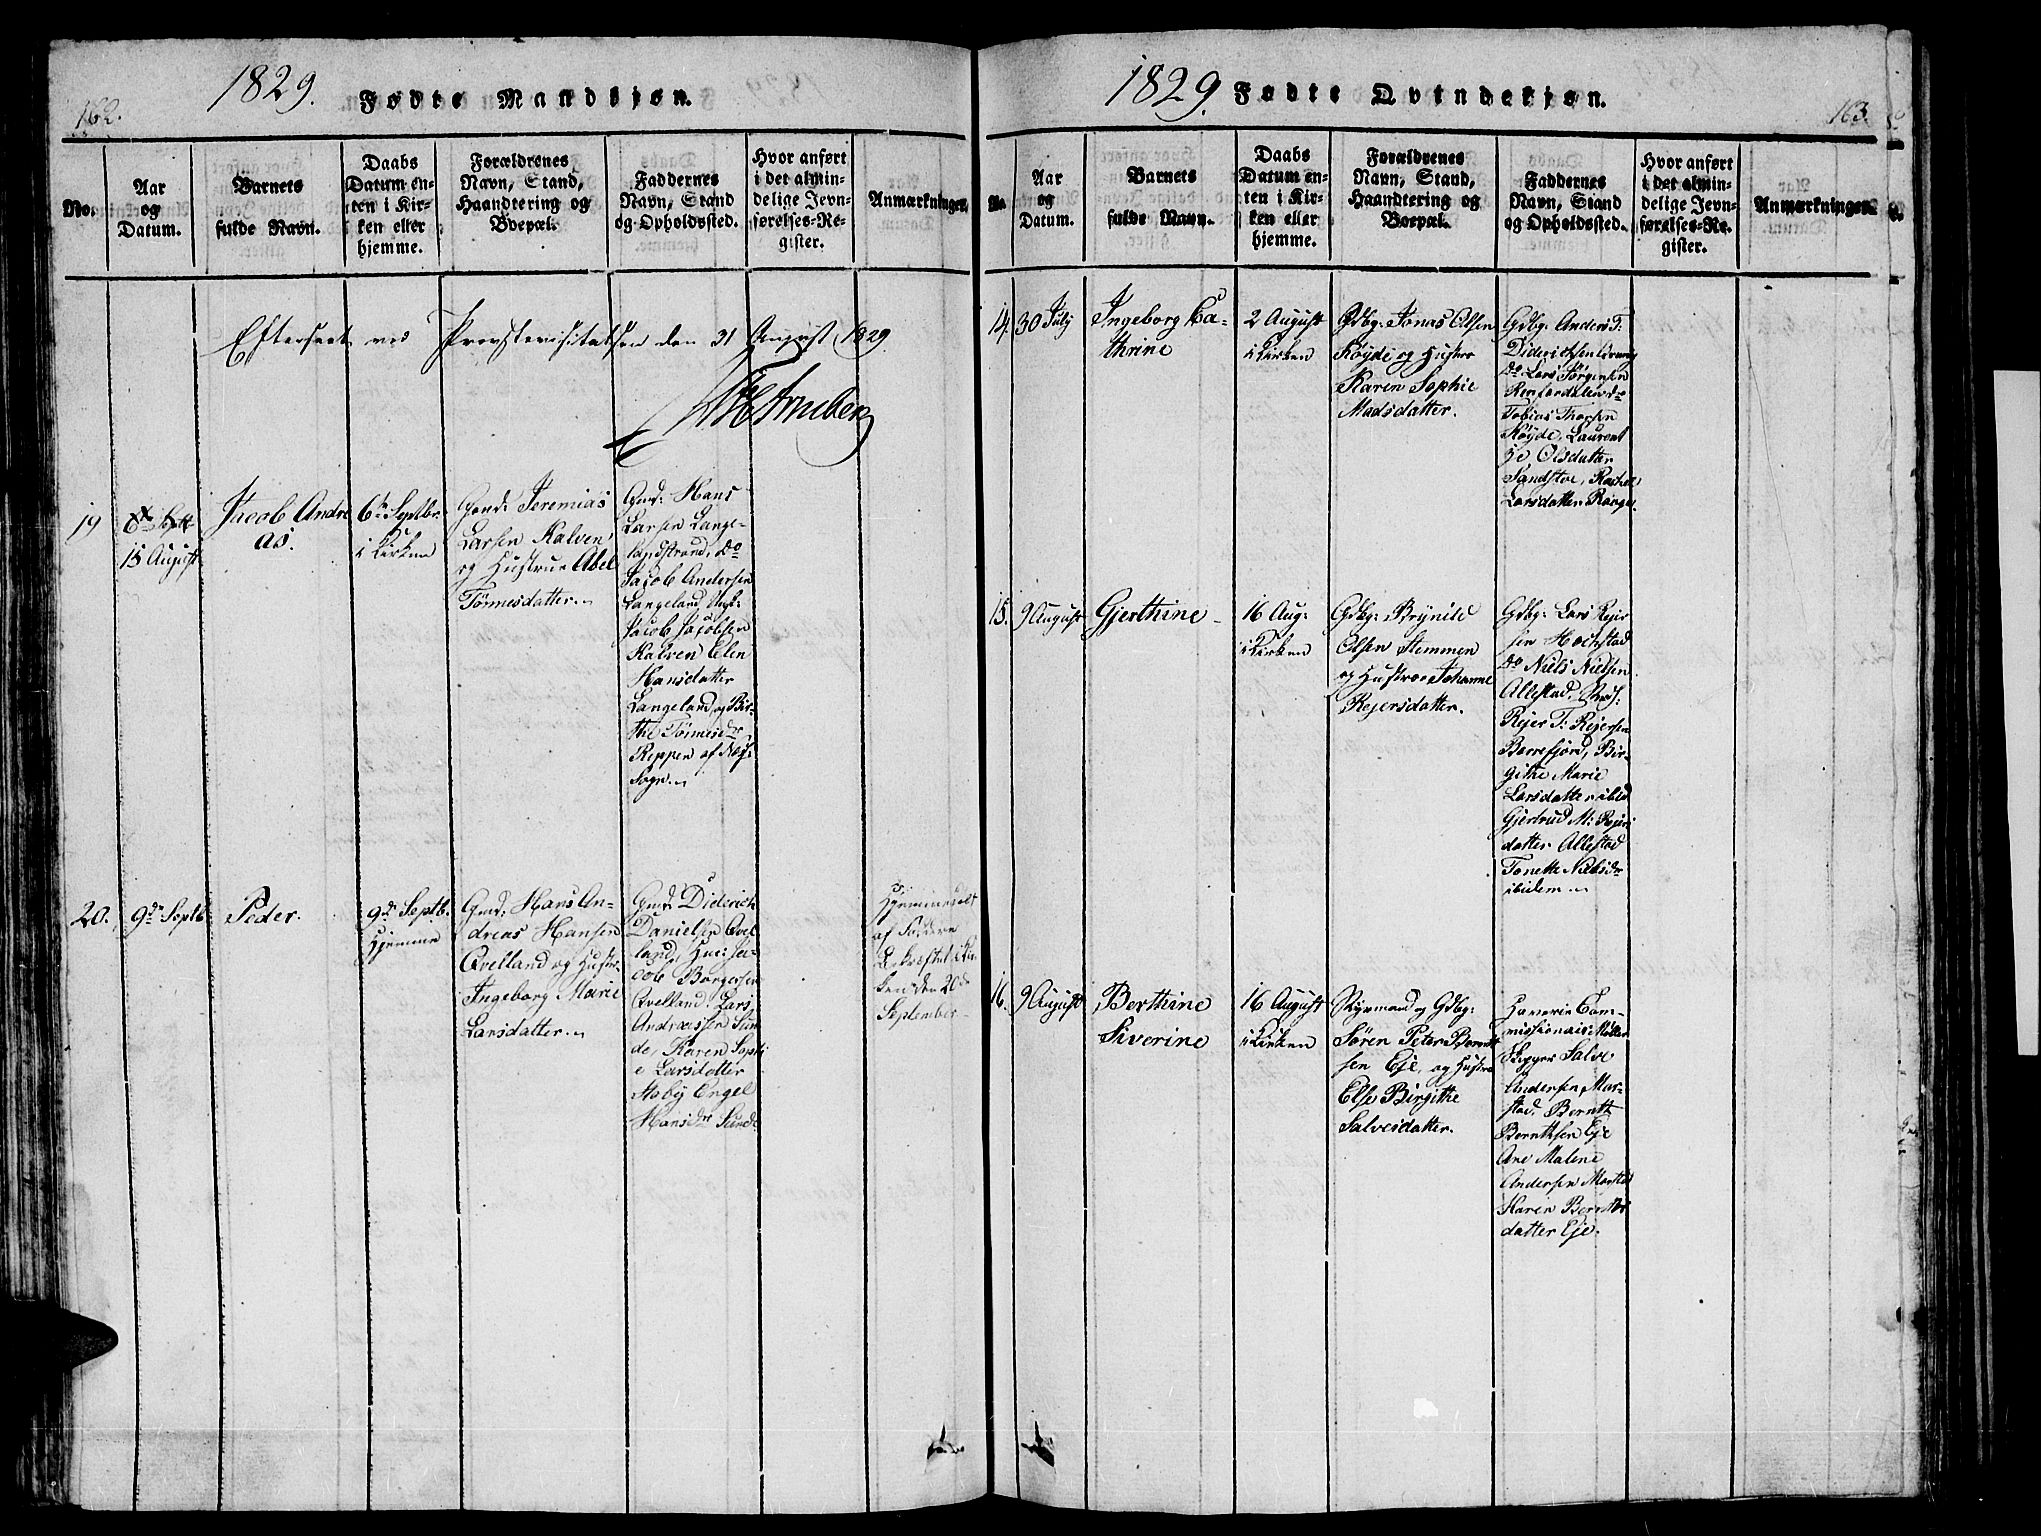 162.
1829. Fødte Mandkjøn.
No.
Aar
og
Datum.
Barnets
fulde Navn.
Daabs
Datum en-
ten i Kir-
ken eller
hjemme.
Forældrenes
Navn, Stand,
Haandtering og
Boepæl.
Faddernes
Navn, Stand
og Opholdssted.
Hvor anført
i det almin-
delige Jevn-
førelses-Re-
gister.
Anmærkninger.
Efterseet ved Provstevisitatsen den 31 August 1829.
19
15 August
Jacob Andre
as.
6te Septbr.
i Kirken
Gmd: Jeremias
Larsen Kalven,
og Hustrue Abel
Tönnesdatter.
Gmd: Hans
Larsen Lange-
landstrand, do
Jacob Andersen
Langeland,
Jacob Jacobsen
Kalven Elen
Hansdatter
Langeland, og Bir-
the Tönnesdr
Reppen af Næs
Sogn.
20.
9de Septb
Peder.
9de Septb.
Hjemme
Gmd: Hans An-
dreas Hansen
Qvelland og Hustr:
Ingeborg Marie
Larsdatter.
Gmd: Diderich
Danielsen Qvel
land, Huus: Ja-
cob Borgersen
Qvelland, Lars
Andreassen Sun-
de, Karen Sophi
e Larsdatter
Stoby Engel
Hansdr Sunde
Hjemmedøbt
af Fadere
Bekræftet i Kir
ken den 20de
September
1829. Fødte Qvindekjøn.
163.
No.
Aar
og
Datum.
Barnets
fulde Navn.
Daabs
Datum en-
ten i Kir-
ken eller
hjemme.
Forældrenes
Navn, Stand,
Haandtering og
Boepæl.
Faddernes
Navn, Stand
og Opholdssted.
Hvor anført
i det almin-
delige Jevn-
førelses-Re-
gister.
Anmærkninger.
14.
30 July
Ingeborg Ca-
thrine
2 August
i Kirken
Gdbg: Jonas Olsen
Röyde og Hustrue
Karen Sophie
Madsdatter.
Gdbg: Anders T:
Diderichsen
do Lars Jörgensen
Tobias Thorsen
Röyde, Laurent
ze Olsdatter
Sandstöe, Rachel
Larsdatter
15.
9 August
Gjerthine
16 Aug:
i Kirken
Gdbg: Brynild
Olsen Stemmen
og Hustroe Johanne
Rejersdatter.
Gdbg: Lars Rejer
sen Hochstad
do Niels Nielsen
Allestad,
Rejer T: Rejersen
Borrefjord, Bir-
githe Marie
Larsdatter ibid
Gjertrud M: Rejers
datter Allestad
Tonette Nielsdr
ibidem
16.
9 August
Berthine
Siverine
16 August
i Kirken
Skipmand og Gdbg:
Sören Peter Bernt
sen Eje, og Hustro
Else Birgithe
Salvesdatter.
Com-
missionair Möller
Skipper Salve
Andersen, Mar-
stad. Bernth
Bernthsen Eje
Ane Malene
Andersen Marstad
Karen Bernths
datter Eje.